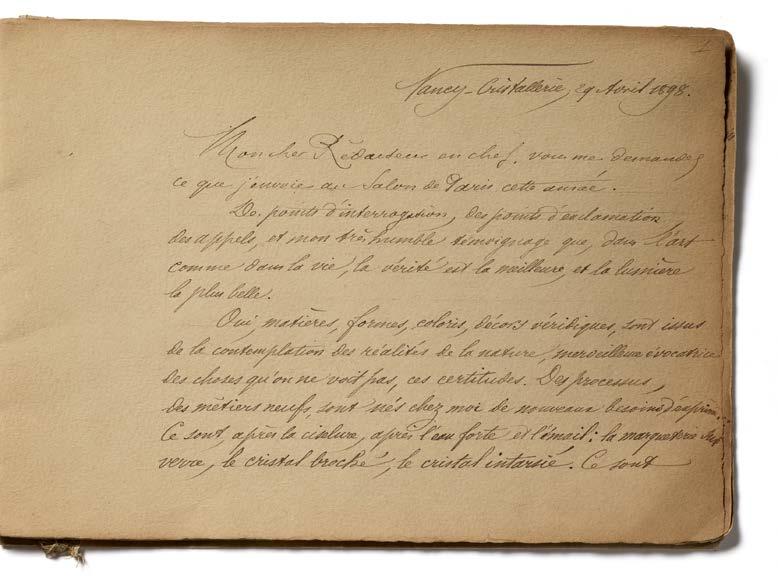 1
Nancy-Cristallerie, 29 Avril 1898.
Mon cher Rédacteur en chef, vous me demandez
ce que j'envoie au Salon de Paris cette année.
Des points d'interrogation, des points d'exclamation,
des appels, et mon très humble témoignage que, dans l'art
comme dans la vie, la vérité est la meilleure, et la lumière
la plus belle.
Oui, matières, formes, coloris, décors véridiques, sont issus
de la contemplation des réalités de la nature, merveilleuse évocatrice
des choses qu'on ne voit pas, ces certitudes. Des processus,
des métiers neufs, sont nés chez moi de nouveaux besoins d'exprim
Ce sont, après la ciselure, après l'eau forte et l'émail: la marqueterie sur
verre, le cristal broché, le cristal intarsié. Ce sont